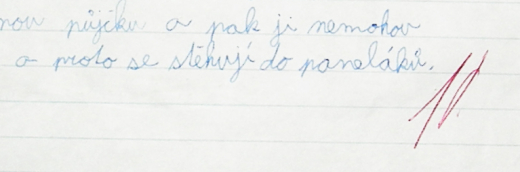 nou půjčku a pak ji nemohou
a proto se stěhují do paneláků.